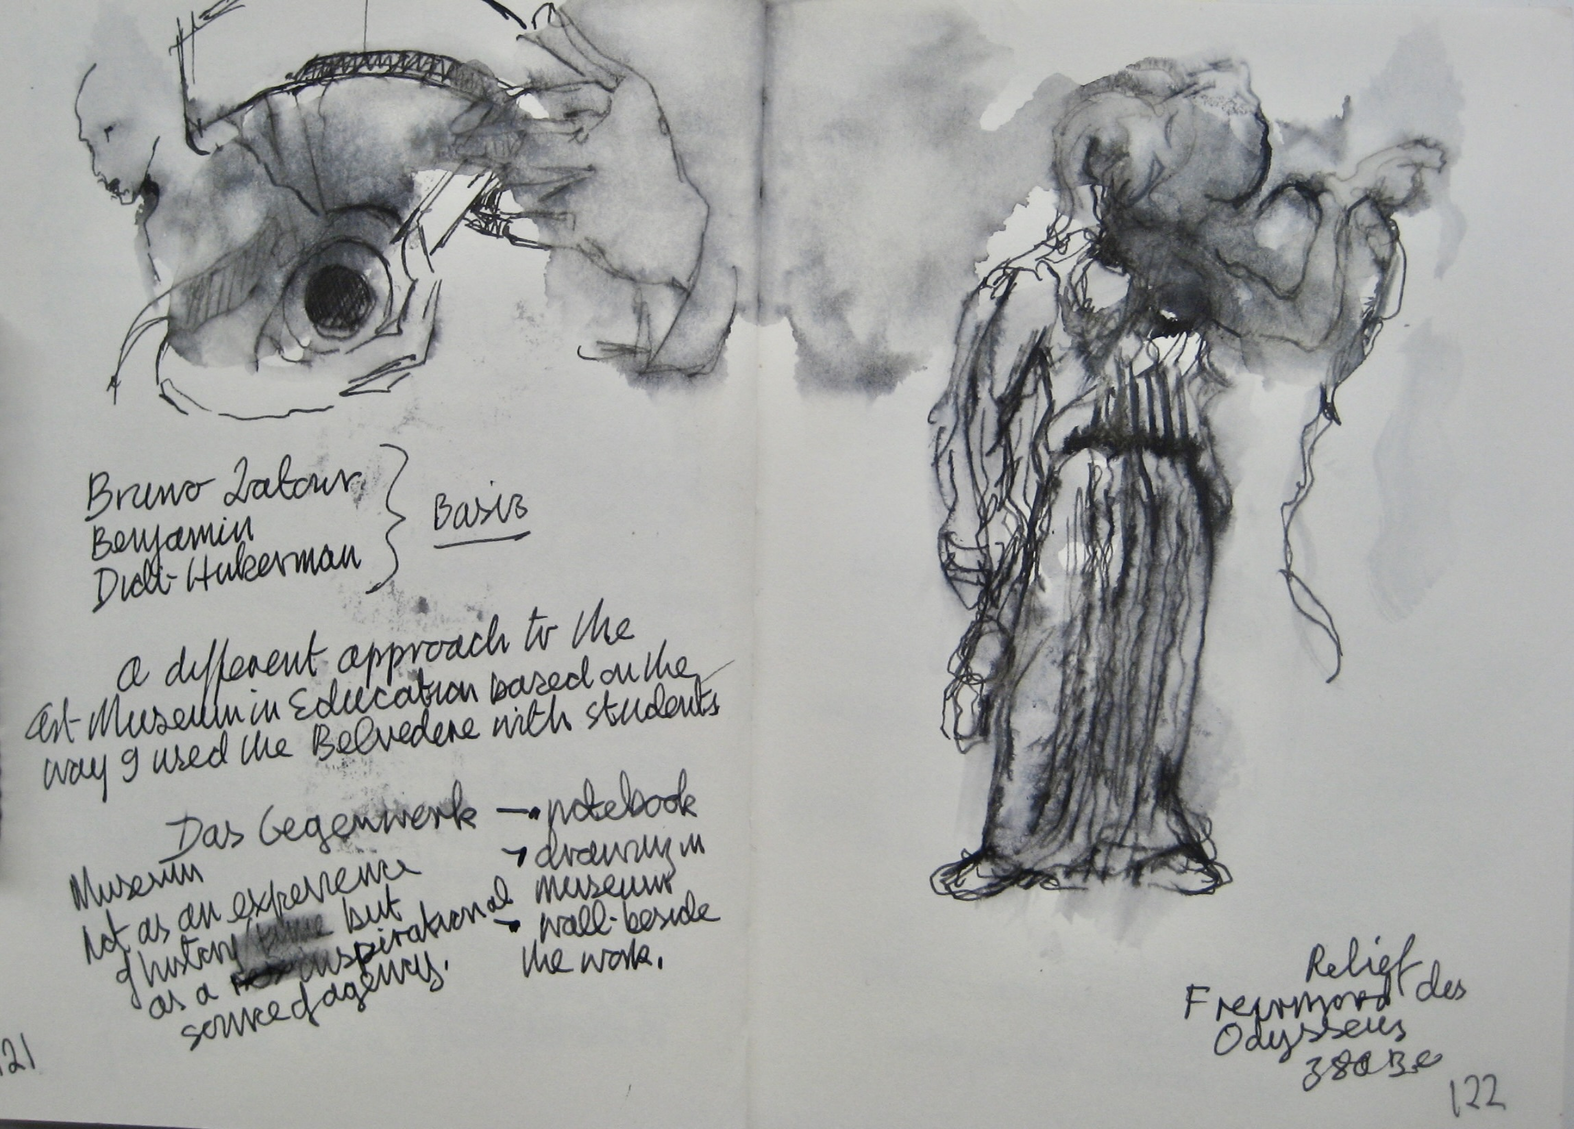 Bruno Latour
Benjamin
Didi-Hukerman
Basis
a different approach to the
art-Museum in Education based on the
way I used the Belvedere with students
Das Gegenwerk → notebook
→ drawing in
museum
→ wall-beside
the work.
Museum
not as an experience
of history/time but
as a inspirational
source of agency.
121
Relief
Freiermord des
Odysseus
380 BC
122